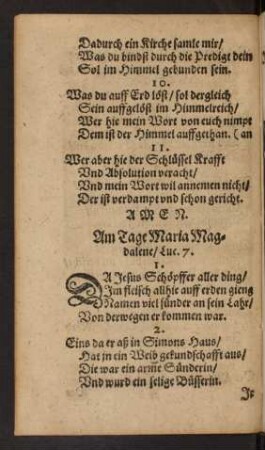 Dadurch ein Kirche samle mir/
Was du bindst durch die Predigt dein
Sol im Himmel gebunden sein.
10.
Was du auff Erd löst/ sol dergleich
Sein auffgelöst im Himmelreich/
Wer hie mein Wort von euch nimpt
Dem ist der Himmel auffgethan. (an
11.
Wer aber hie der Schlüssel Krafft
Vnd Absolution veracht/
Vnd mein Wort wil annemen nicht/
Der ist verdampt vnd schon gericht.
A M E N.
Am Tage Maria Mag-
dalene/ Luc. 7.
1.
DA Jesus Schöpffer aller ding/
Im fleisch allhie auff erden gieng
Namen viel sünder an sein Lahr/
Von derwegen er kommen war.
2.
Eins da er aß in Simons Haus/
Hat jn ein Weib gekundschafft aus/
Die war ein arme Sünderin/
Vnd wurd ein selige Büsserin.